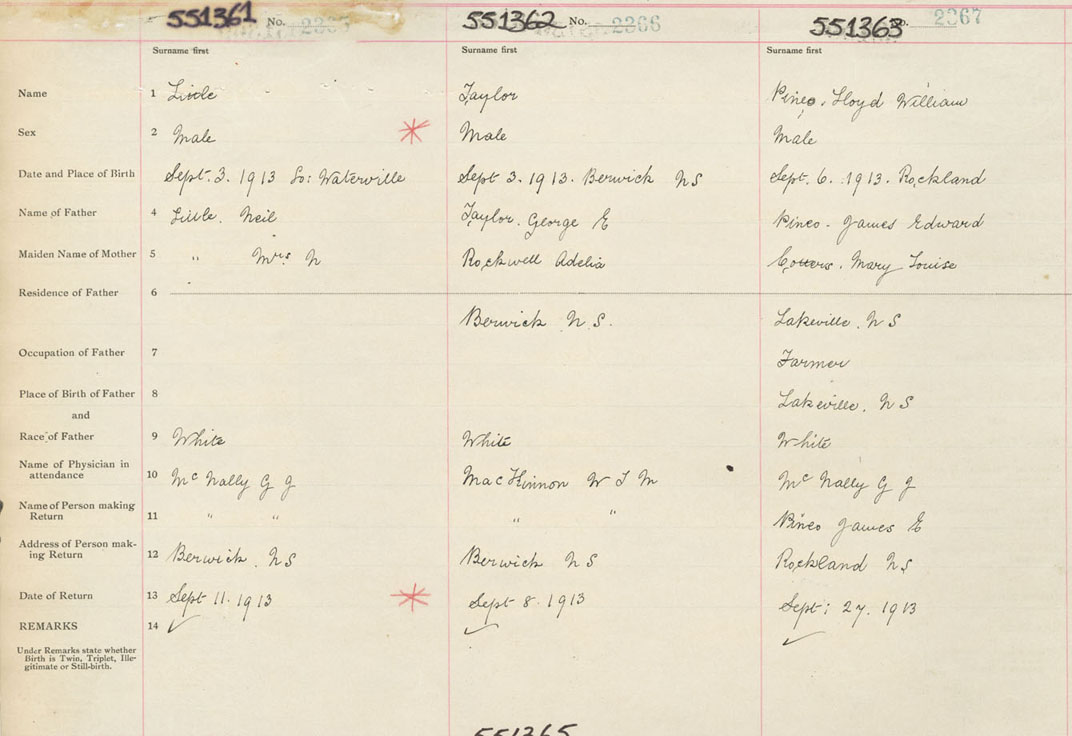 551361 No. 551362 No. 2366 551363 No. 2367
Surname first Surname first Surname first
Name 1 Little Taylor Pineo. Lloyd William
Sex 2 Male Male Male
Date and Place of Birth Sept. 3. 1913 So: Waterville Sept 3. 1913. Berwick NS Sept. 6. 1913. Rockland
Name of Father 4 Little. Neil Taylor. George E Pineo. James Edward
Maiden Name of Mother 5 " Mrs N Rockwell Adelia Mary Louise
Residence of Father 6
Berwick N.S. Lakeville. N S
Occupation of Father 7 Farmer
Place of Birth of Father 8 Lakeville. N S
and
Race of Father 9 White White White
Name of Physician in
attendance 10 Mc Nally G J MacKinnon W J M Mc Nally G J
Name of Person making
Return 11 " " " " Pineo James E
Address of Person mak-
ing Return 12 Berwick. NS Berwick NS Rockland NS
Date of Return 13 Sept 11. 1913 Sept 8. 1913 Sept: 27. 1913
REMARKS 14 ✓ ✓ ✓
Under Remarks state whether
Birth is Twin, Triplet, Ille-
gitimate or Still-birth.
551365